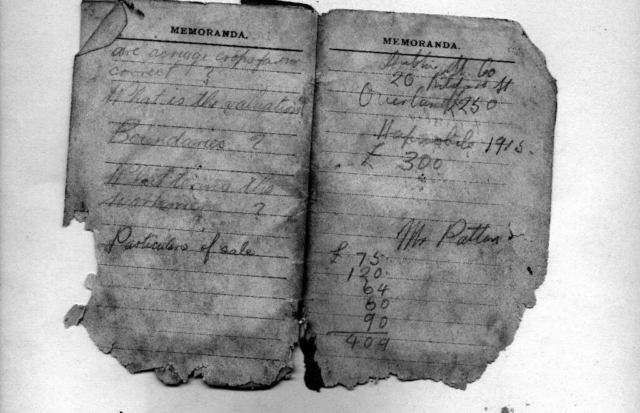 MEMORANDA.
are acreage crops
correct ?
What is the valuation?
Boundaries ?
What terms the
?
Particulars of sale
MEMORANDA.
Co
20 St
Overland 250
Hupmobile 1915.
£ 300
Mr Patten's
£ 75
120
64
60
90
409